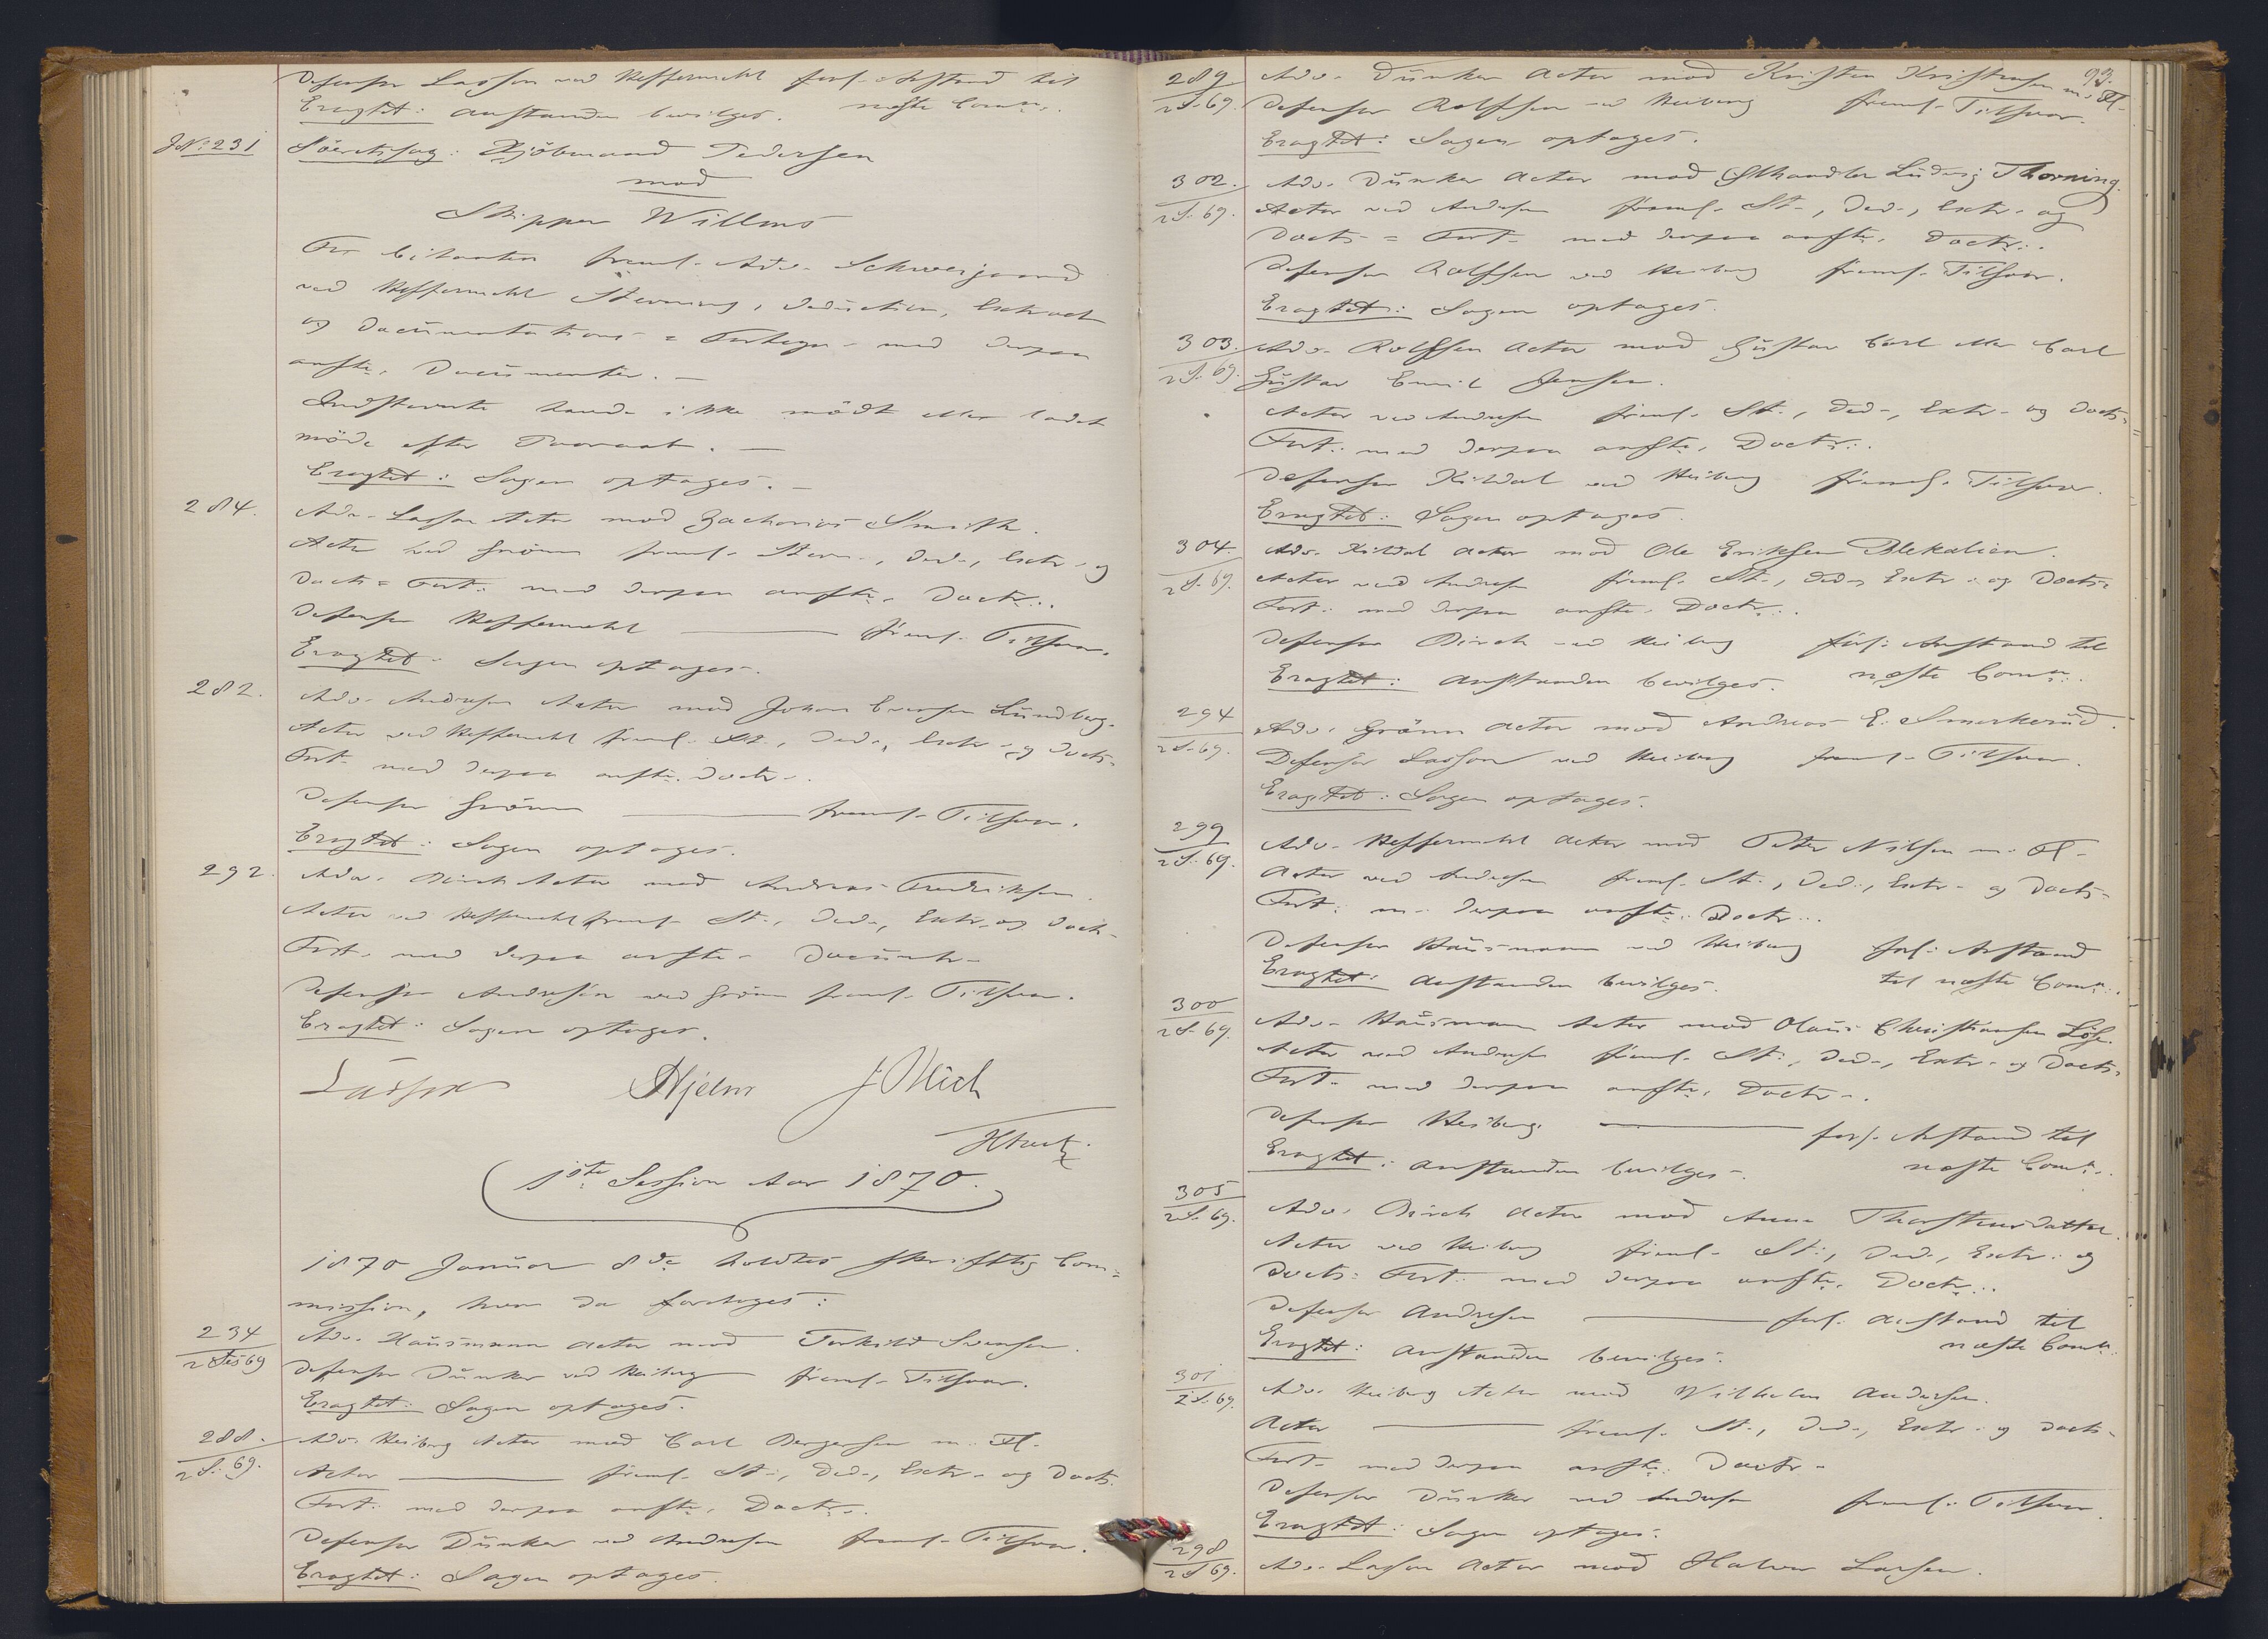 Defensor Lasson ved Hesselmahl forl. Anstand til
Eragtet: Anstanden bevilges. næste Comn:
J. No 231 Söeretssag: Kjöbmand Pedersen
mod
Skipper Willms
For Citanten freml. Adv. Schweigaard
ved Stevning, Deduction, Extract
og Documentations = Forteg- med derpaa
anfte. Documenter. —
Indstevnte havde ikke mödt eller ladet
möde efter Paaraab. —
Eragtet: Sagen optages. —
284. Adv. Lasson Actor mod Zacharias Smith.
Actor ved Grönn freml. Stevn-, Ded-, Extr- og
Docts = Fort: med derpaa anfte. Doctr:.
Defensor ——— freml. Tilsvar.
Eragtet: Sagen optages.
282. Adv. Andresen Actor mod Johan Lundberg.
Actor ved freml. St., Ded-, Extr- og Docts-
Fort- med derpaa anfte. Doctr-.
Defensor Grönn ——— freml. Tilsvar.
Eragtet: Sagen optages.
292. Adv. Birch Actor mod Andreas Fredriksen.
Actor ved freml. St., Ded-, Extr- og Docts-
Fort- med derpaa anfte- Documtr-
Defensor Andresen ved Grönn freml. Tilsvar.
Eragtet: Sagen optages.
Lasson Hjelm
1ste Session Aar 1870.
1870 Januar 8de holdtes skriftlig Com=
mission, hvor da foretoges:
234 / 2 Ses 69 Adv. Hausmann Actor mod Torkild Svensen.
Defensor Dunker ved Heiberg freml. Tilsvar.
Eragtet: Sagen optages.
288. / 2 S. 69. Adv. Heiberg Actor mod Carl Bergersen m. Fl.
Actor ——— freml. St-, Ded-, Extr- og Docts-
Fort: med derpaa anfte. Doctr-.
Defensor Dunker ved Andresen freml. Tilsvar.
Eragtet: Sagen optages.
93.
289 / 2 S. 69. Adv. Dunker Actor mod Kristen Kristensen m. Fl.
Defensor Rolfsen ved Heiberg freml. Tilsvar.
Eragtet: Sagen optages.
302. / 2 S. 69. Adv. Dunker Actor mod Ludvig Thorning.
Actor ved Andresen freml. St-, Ded-, Extr- og
Docts- = Fort- med derpaa anfte. Doctr:.
Defensor Rolfsen ved Heiberg freml. Tilsvar.
Eragtet: Sagen optages.
303. / 2 S. 69. Adv. Rolfsen Actor mod Gustav Carl eller Carl
Gustav Emil Jensen.
Actor ved Andresen freml. St-, Ded-, Extr- og Docts-
Fort: med derpaa anfte. Doctr:.
Defensor Kildal ved Heiberg freml. Tilsvar.
Eragtet: Sagen optages.
304. / 2 S. 69. Adv. Kildal Actor mod Ole Eriksen Blekalien.
Actor ved Andresen freml. St-, Ded-, Extr- og Docts-
Fort: med derpaa anfte. Doctr:.
Defensor Birch ved Heiberg forl. Anstand til
Eragtet: Anstanden bevilges. næste Comn:.
294 / 2 S. 69. Adv. Grönn Actor mod Andreas E. Smerkerud.
Defensor Lasson ved Heiberg freml. Tilsvar.
Eragtet: Sagen optages.
299 / 2 S. 69. Adv. Actor mod Peter Nilsen m. Fl-
Actor ved Andresen freml. St-, Ded-, Extr- og Docts-
Fort: m. derpaa anfte. Doctr:.
Defensor Hausmann ved Heiberg forl. Anstand
Eragtet: Anstanden bevilges. til næste Comn:.
300 / 2 S. 69. Adv. Hausmann Actor mod Olaus Christiansen
Actor ved Andresen freml. St-, Ded-, Extr- og Docts-
Fort- med derpaa anfte. Doctr-.
Defensor Heiberg ——— forl. Anstand til
Eragtet: Anstanden bevilges. næste Comn:.
305 / 2 S. 69. Adv. Birch Actor mod Anne Thorstensdatter.
Actor ved Heiberg freml. St-, Ded-, Extr- og
Docts- Fort: med derpaa anfte. Doctr:.
Defensor Andresen ——— forl. Anstand til
Eragtet: Anstanden bevilges. næste Comn:.
301 / 2 S. 69. Adv. Heiberg Actor mod Wilhelm Andersen.
Actor ——— freml. St-, Ded-, Extr- og Docts-
Fort- med derpaa anfte. Doctr-
Defensor Dunker ved Andresen freml. Tilsvar.
Eragtet: Sagen optages.
298 / 2 S 69. Adv. Lasson Actor mod Halvor Larsen.